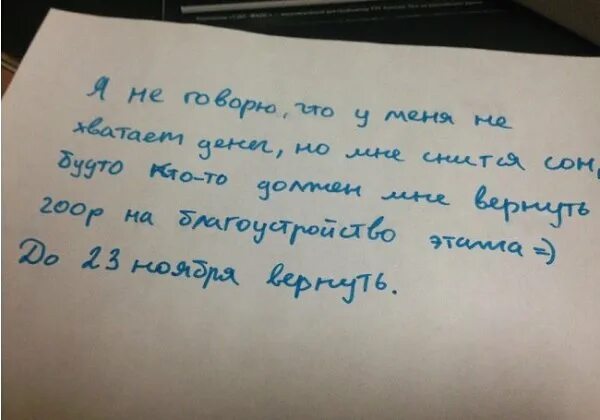 Я не говорю, что у меня не
хватает денег, но мне снится сон,
будто кто-то должен мне вернуть
200р на благоустройство этажа =)
До 23 ноября вернуть.